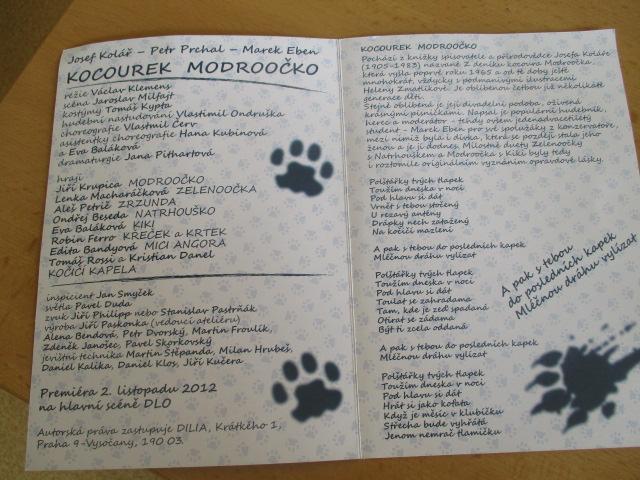 Josef Kolář – Petr Prchal – Marek Eben
KOCOUREK MODROOČKO
režie Václav Klemens
scéna Jaroslav Milfajt
kostýmy Tomáš Kypta
hudební nastudování Vlastimil Ondruška
choreografie Vlastmil Červ
asistentky choreografie Hana Kubinová
a Eva Baláková
dramaturgie Jana Pithartová
hrají
Jiří Krupica MODROOČKO
Lenka Macharáčková ZELENOOČKA
Aleš Petrič ZRZUNDA
Ondřej Beseda NATRHOUŠKO
Eva Baláková KIKI
Robin Ferro KREČEK a KRTEK
Edita Bandyová MICI ANGORA
Tomáš Rossi a Kristian Danel
KOČIČÍ KAPELA
inspicient Jan Smyček
světla Pavel Duda
zvuk Jiří Philipp nebo Stanislav Pastrňák
výroba Jiří Paskonka (vedoucí ateliérů)
Alena Bendová, Petr Dvorský, Martin Froulík,
Zdeněk Janošec, Pavel Skorkovský
jevištní technika Martin Štěpanda, Milan Hrubeš,
Daniel Kalika, Daniel Klos, Jiří Kučera
Premiéra 2. listopadu 2012
na hlavní scéně DLO
Autorská práva zastupuje DILIA, Krátkého 1,
Praha 9-Vysočany, 190 03.
KOCOUREK MODROOČKO
Pochází z knížky spisovatele a přírodovědce Josefa Koláře
(1905-1983) nazvané Z deníku kocoura Modroočka,
která vyšla poprvé roku 1965 a od té doby ještě
mnohokrát, vždycky s podmanivými ilustracemi
Heleny Zmatlíkové. Je oblíbenou četbou již několikáté
generace dětí.
Stejně oblíbená je její divadelní podoba, oživená
krásnými písničkami. Napsal je populární bavič,
herec a moderátor - tehdy ovšem jedenadvacetiletý
student - Marek Eben pro své spolužáky z konzervatoře,
mezi nimiž byla i dívka, která se později stala jeho
ženou a je jí dodnes. Milostné duety Zelenoočky
s Natrhouškem a Modroočka s Kiki byly tedy
i roztomile originálním vyznáním opravdové lásky.
Polštářky tvých tlapek
Toužím dneska v noci
Pod hlavu si dát
Vrnět s tebou stočený
U rezavý antény
Drápky nech zatažený
Na kočičí mazlení
A pak s tebou do posledních kapek
Mléčnou dráhu vylízat
Polštářky tvých tlapek
Toužím dneska v noci
Pod hlavu si dát
Toulat se zahradama
Tam, kde je zeď spadaná
Otírat se zádama
Být ti zcela oddaná
A pak s tebou do posledních kapek
Mléčnou dráhu vylízat
Polštářky tvých tlapek
Toužím dneska v noci
Pod hlavu si dát
Hrát si jako koťata
Když je měsíc v klubíčku
Střecha bude vyhřátá
Jenom nemrač tlamičku
A pak s tebou
do posledních kapek
Mléčnou dráhu vylízat